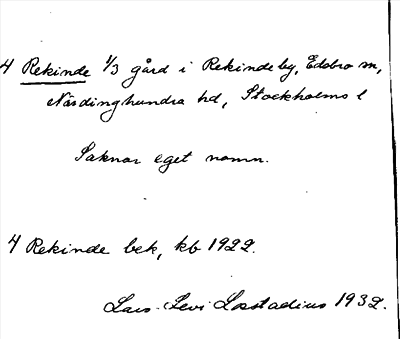 4 Rekinde 1/3 gård i Rekinde by, Edsbro sn,
Närdinghundra hd, Stockholms l
Saknar eget namn.
4 Rekinde bek, kb 1922.
Lars-Levi Læstadius 1932.